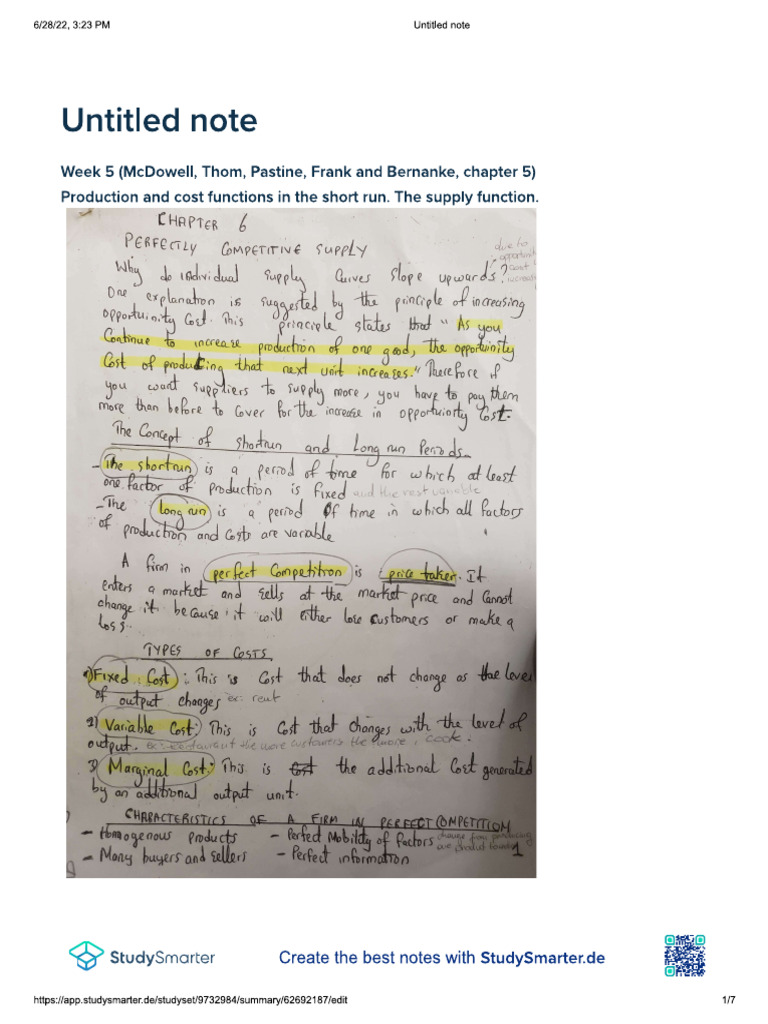 6/28/22, 3:23 PM
Untitled note
Untitled note
Week 5 (McDowell, Thom, Pastine, Frank and Bernanke, chapter 5)
Production and cost functions in the short run. The supply function.
CHAPTER 6
PERFECTLY COMPETITIVE SUPPLY
due to
opportunity
cost
increasing
Why do individual supply curves slope upwards?
One explanation is suggested by the principle of increasing
opportuinity Cost. This principle states that "As you
Continue to increase production of one good, the opportuinity
Cost of producing that next unit increases." Therefore if
you want suppliers to supply more, you have to pay them
more than before to cover for the increase in opportuiority Cost.
The Concept of shortrun and Long run Periods.
- The shortrun is a period of time for which at least
one factor of production is fixed and the rest variable
- The long run is a period of time in which all factors
of production and costs are variable
A firm in perfect Competition is price taker. It
enters a market and sells at the market price and cannot
change it because it will either lose customers or make a
loss.
TYPES OF COSTS
1) Fixed Cost: This is Cost that does not change as the level
of output changes ex: rent
2) Variable Cost: This is Cost that changes with the level of
output. ex: restaurant the more customers the more cook.
3) Marginal Cost: This is Cost the additional Cost generated
by an additional output unit.
CHARACTERISTICS OF A FIRM IN PERFECT COMPETITION
- Homogenous products - Perfect Mobility of factors change from producing
one product to
- Many buyers and sellers - Perfect information
1
StudySmarter
Create the best notes with StudySmarter.de
https://app.studysmarter.de/studyset/9732984/summary/62692187/edit
1/7